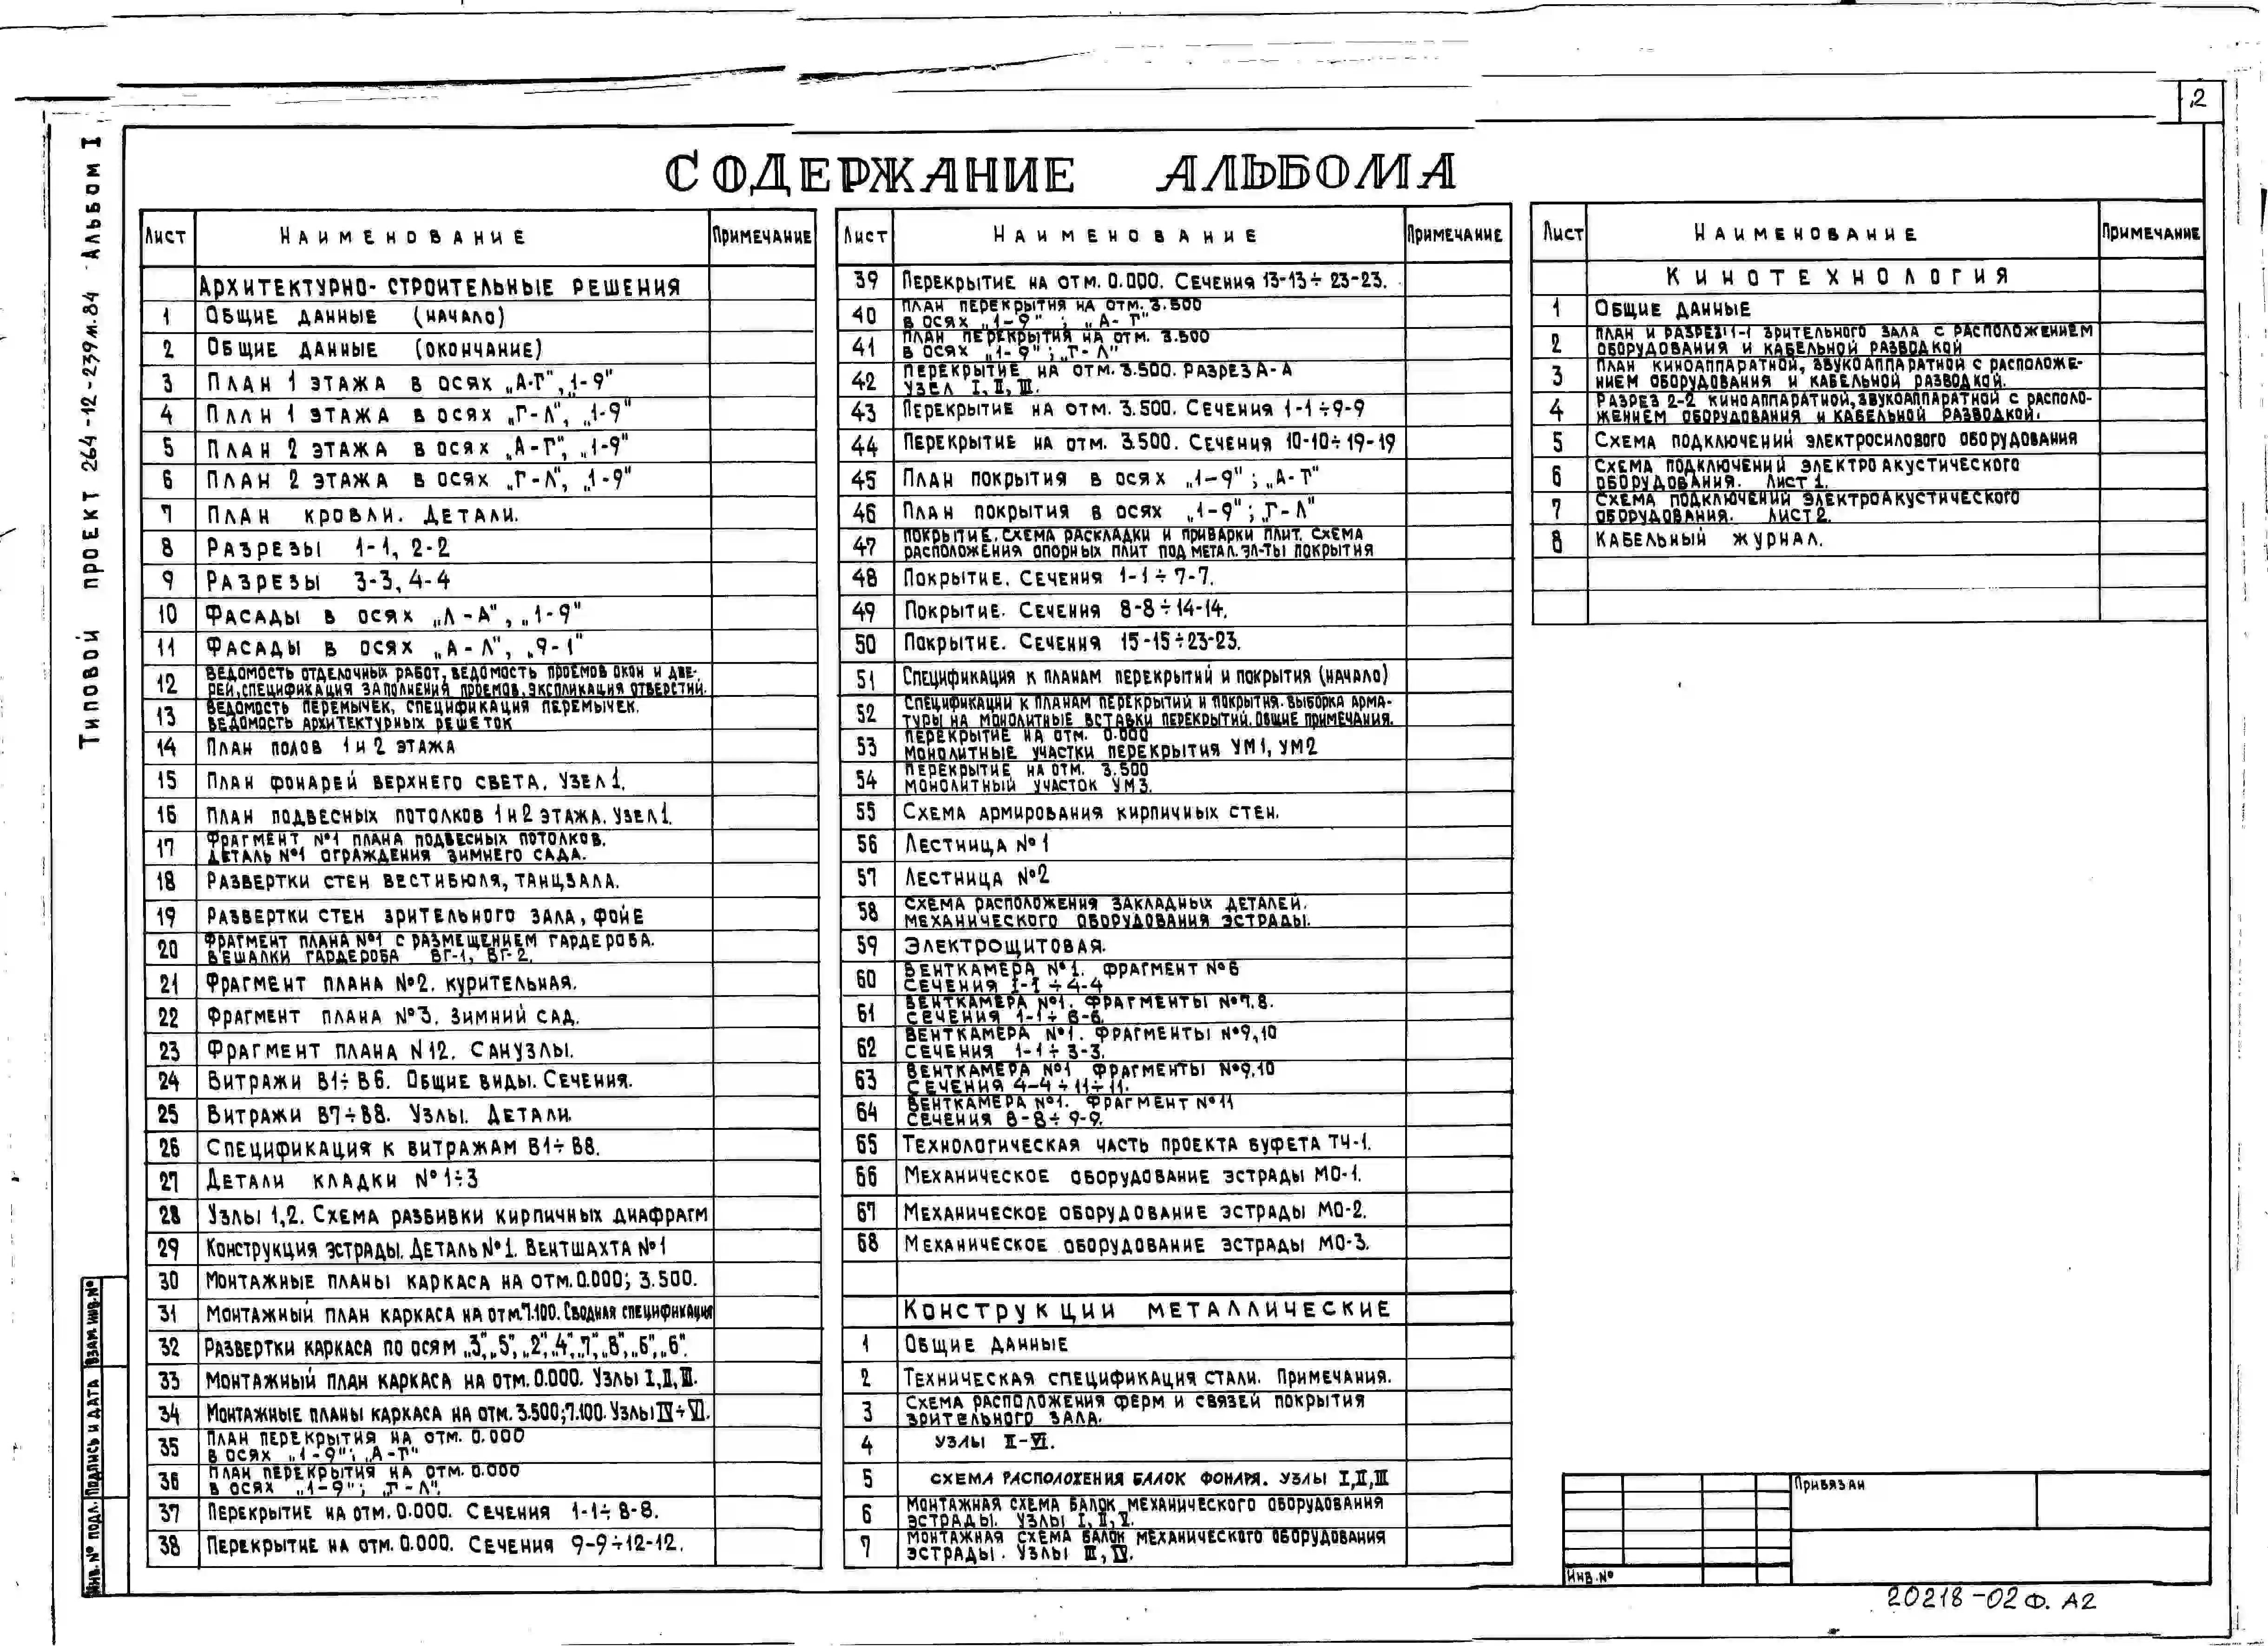 2
Типовой проект 264-12-239м.84 Альбом I
СОДЕРЖАНИЕ АЛЬБОМА
Лист Наименование Примечание
Архитектурно-строительные решения
1 Общие данные (начало)
2 Общие данные (окончание)
3 План 1 этажа в осях „А-Г", „1-9"
4 План 1 этажа в осях „Г-Л", „1-9"
5 План 2 этажа в осях „А-Г", „1-9"
6 План 2 этажа в осях „Г-Л", „1-9"
7 План кровли. Детали.
8 Разрезы 1-1, 2-2
9 Разрезы 3-3, 4-4
10 Фасады в осях „Л-А", „1-9"
11 Фасады в осях „А-Л", „9-1"
12 Ведомость отделочных работ, ведомость проемов окон и две-
рей, спецификация заполнения проемов, экспликация отверстий.
13 Ведомость перемычек, спецификация перемычек.
Ведомость архитектурных решеток
14 План полов 1 и 2 этажа
15 План фонарей верхнего света. Узел 1.
16 План подвесных потолков 1 и 2 этажа. Узел 1.
17 Фрагмент №1 плана подвесных потолков.
Деталь №1 ограждения зимнего сада.
18 Развертки стен вестибюля, танцзала.
19 Развертки стен зрительного зала, фойе
20 Фрагмент плана №1 с размещением гардероба.
Вешалки гардероба ВГ-1, ВГ-2.
21 Фрагмент плана №2. курительная.
22 Фрагмент плана №3. Зимний сад.
23 Фрагмент плана N12. Санузлы.
24 Витражи В1÷В6. Общие виды. Сечения.
25 Витражи В7÷В8. Узлы. Детали.
26 Спецификация к витражам В1÷В8.
27 Детали кладки №1÷3
28 Узлы 1,2. Схема разбивки кирпичных диафрагм
29 Конструкция эстрады. Деталь №1. Вентшахта №1
30 Монтажные планы каркаса на отм. 0.000; 3.500.
31 Монтажный план каркаса на отм. 7.100. Сводная спецификация
32 Развертки каркаса по осям „3", „5", „2", „4", „7", „8", „Б", „6".
33 Монтажный план каркаса на отм. 0.000. Узлы I, II, III.
34 Монтажные планы каркаса на отм. 3.500; 7.100. Узлы IV÷VI.
35 План перекрытия на отм. 0.000
в осях „1-9"; „А-Г"
36 План перекрытия на отм. 0.000
в осях „1-9"; „Г-Л".
37 Перекрытие на отм. 0.000. Сечения 1-1÷8-8.
38 Перекрытие на отм. 0.000. Сечения 9-9÷12-12.
Лист Наименование Примечание
39 Перекрытие на отм. 0.000. Сечения 13-13÷23-23.
40 План перекрытия на отм. 3.500
в осях „1-9"; „А-Г"
41 План перекрытия на отм. 3.500
в осях „1-9"; „Г-Л"
42 Перекрытие на отм. 3.500. Разрез А-А
Узел I, II, III.
43 Перекрытие на отм. 3.500. Сечения 1-1÷9-9
44 Перекрытие на отм. 3.500. Сечения 10-10÷19-19
45 План покрытия в осях „1-9"; „А-Г"
46 План покрытия в осях „1-9"; „Г-Л"
47 Покрытие. Схема раскладки и приварки плит. Схема
расположения опорных плит под метал. эл-ты покрытия
48 Покрытие. Сечения 1-1÷7-7.
49 Покрытие. Сечения 8-8÷14-14.
50 Покрытие. Сечения 15-15÷23-23.
51 Спецификация к планам перекрытий и покрытия (начало)
52 Спецификации к планам перекрытий и покрытия. Выборка арма-
туры на монолитные вставки перекрытий. Общие примечания.
53 Перекрытие на отм. 0.000
Монолитные участки перекрытия УМ1, УМ2
54 Перекрытие на отм. 3.500
Монолитный участок УМ3.
55 Схема армирования кирпичных стен.
56 Лестница №1
57 Лестница №2
58 Схема расположения закладных деталей.
механического оборудования эстрады.
59 Электрощитовая.
60 Венткамера №1. Фрагмент №6
Сечения 1-1÷4-4
61 Венткамера №1. Фрагменты №7,8.
Сечения 1-1÷6-6.
62 Венткамера №1. Фрагменты №9,10
Сечения 1-1÷3-3.
63 Венткамера №1 Фрагменты №9,10
Сечения 4-4÷11÷11.
64 Венткамера №1. Фрагмент №11
Сечения 8-8÷9-9.
65 Технологическая часть проекта буфета ТЧ-1.
66 Механическое оборудование эстрады МО-1.
67 Механическое оборудование эстрады МО-2.
68 Механическое оборудование эстрады МО-3.
Конструкции металлические
1 Общие данные
2 Техническая спецификация стали. Примечания.
3 Схема расположения ферм и связей покрытия
зрительного зала.
4 Узлы II-VI.
5 Схема расположения балок фонаря. Узлы I, II, III
6 Монтажная схема балок механического оборудования
эстрады. Узлы I, II, V.
7 Монтажная схема балок механического оборудования
эстрады. Узлы III, IV.
Лист Наименование Примечание
Кинотехнология
1 Общие данные
2 План и разрез 1-1 зрительного зала с расположением
оборудования и кабельной разводкой
3 План киноаппаратной, звукоаппаратной с расположе-
нием оборудования и кабельной разводкой.
4 Разрез 2-2 киноаппаратной, звукоаппаратной с располо-
жением оборудования и кабельной разводкой.
5 Схема подключений электросилового оборудования
6 Схема подключений электроакустического
оборудования. Лист 1.
7 Схема подключений электроакустического
оборудования. Лист 2.
8 Кабельный журнал.
Привязан
Инв.№
Инв.№ подл. Подпись и дата Взам. инв.№
20218-02 Ф. А2